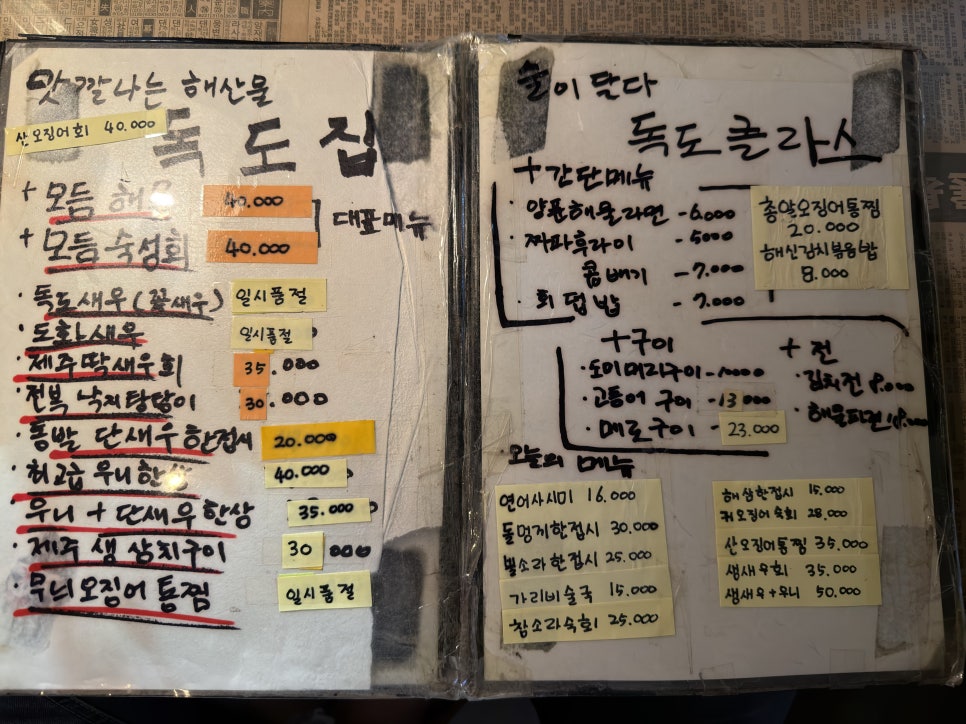 맛깔나는 해산물
산오징어회 40.000
독도집
+ 모듬 해물 40.000
+ 모듬숙성회 40.000
대표메뉴
· 독도새우(꽃새우) 일시품절
· 도화새우 일시품절
· 제주딱새우회 35.000
· 전복 낙지탕탕이 30.000
· 통발 단새우한접시 20.000
· 최고급 우니한상 40.000
· 우니 + 단새우한상 35.000
· 제주 생 삼치구이 30 000
· 무늬오징어 통찜 일시품절
술이 달다
독도클라스
+ 간단메뉴
· 양푼해물라면 - 6.000
· 짜파후라이 - 5000
콤배기 - 7.000
· 회덮밥 - 7.000
총알오징어통찜
20.000
해신김치볶음밥
8.000
+ 구이
· 도미머리구이
· 고등어 구이 - 13.000
· 메로구이 - 23.000
+ 전
· 김치전 8.000
· 해물파전
· 오늘의 메뉴
연어사시미 16.000
돌멍게한접시 30.000
뿔소라한접시 25.000
가리비술국 15.000
참소라숙회 25.000
해삼한접시 15.000
귀오징어숙회 28.000
산오징어통찜 35.000
생새우회 35.000
생새우+우니 50.000